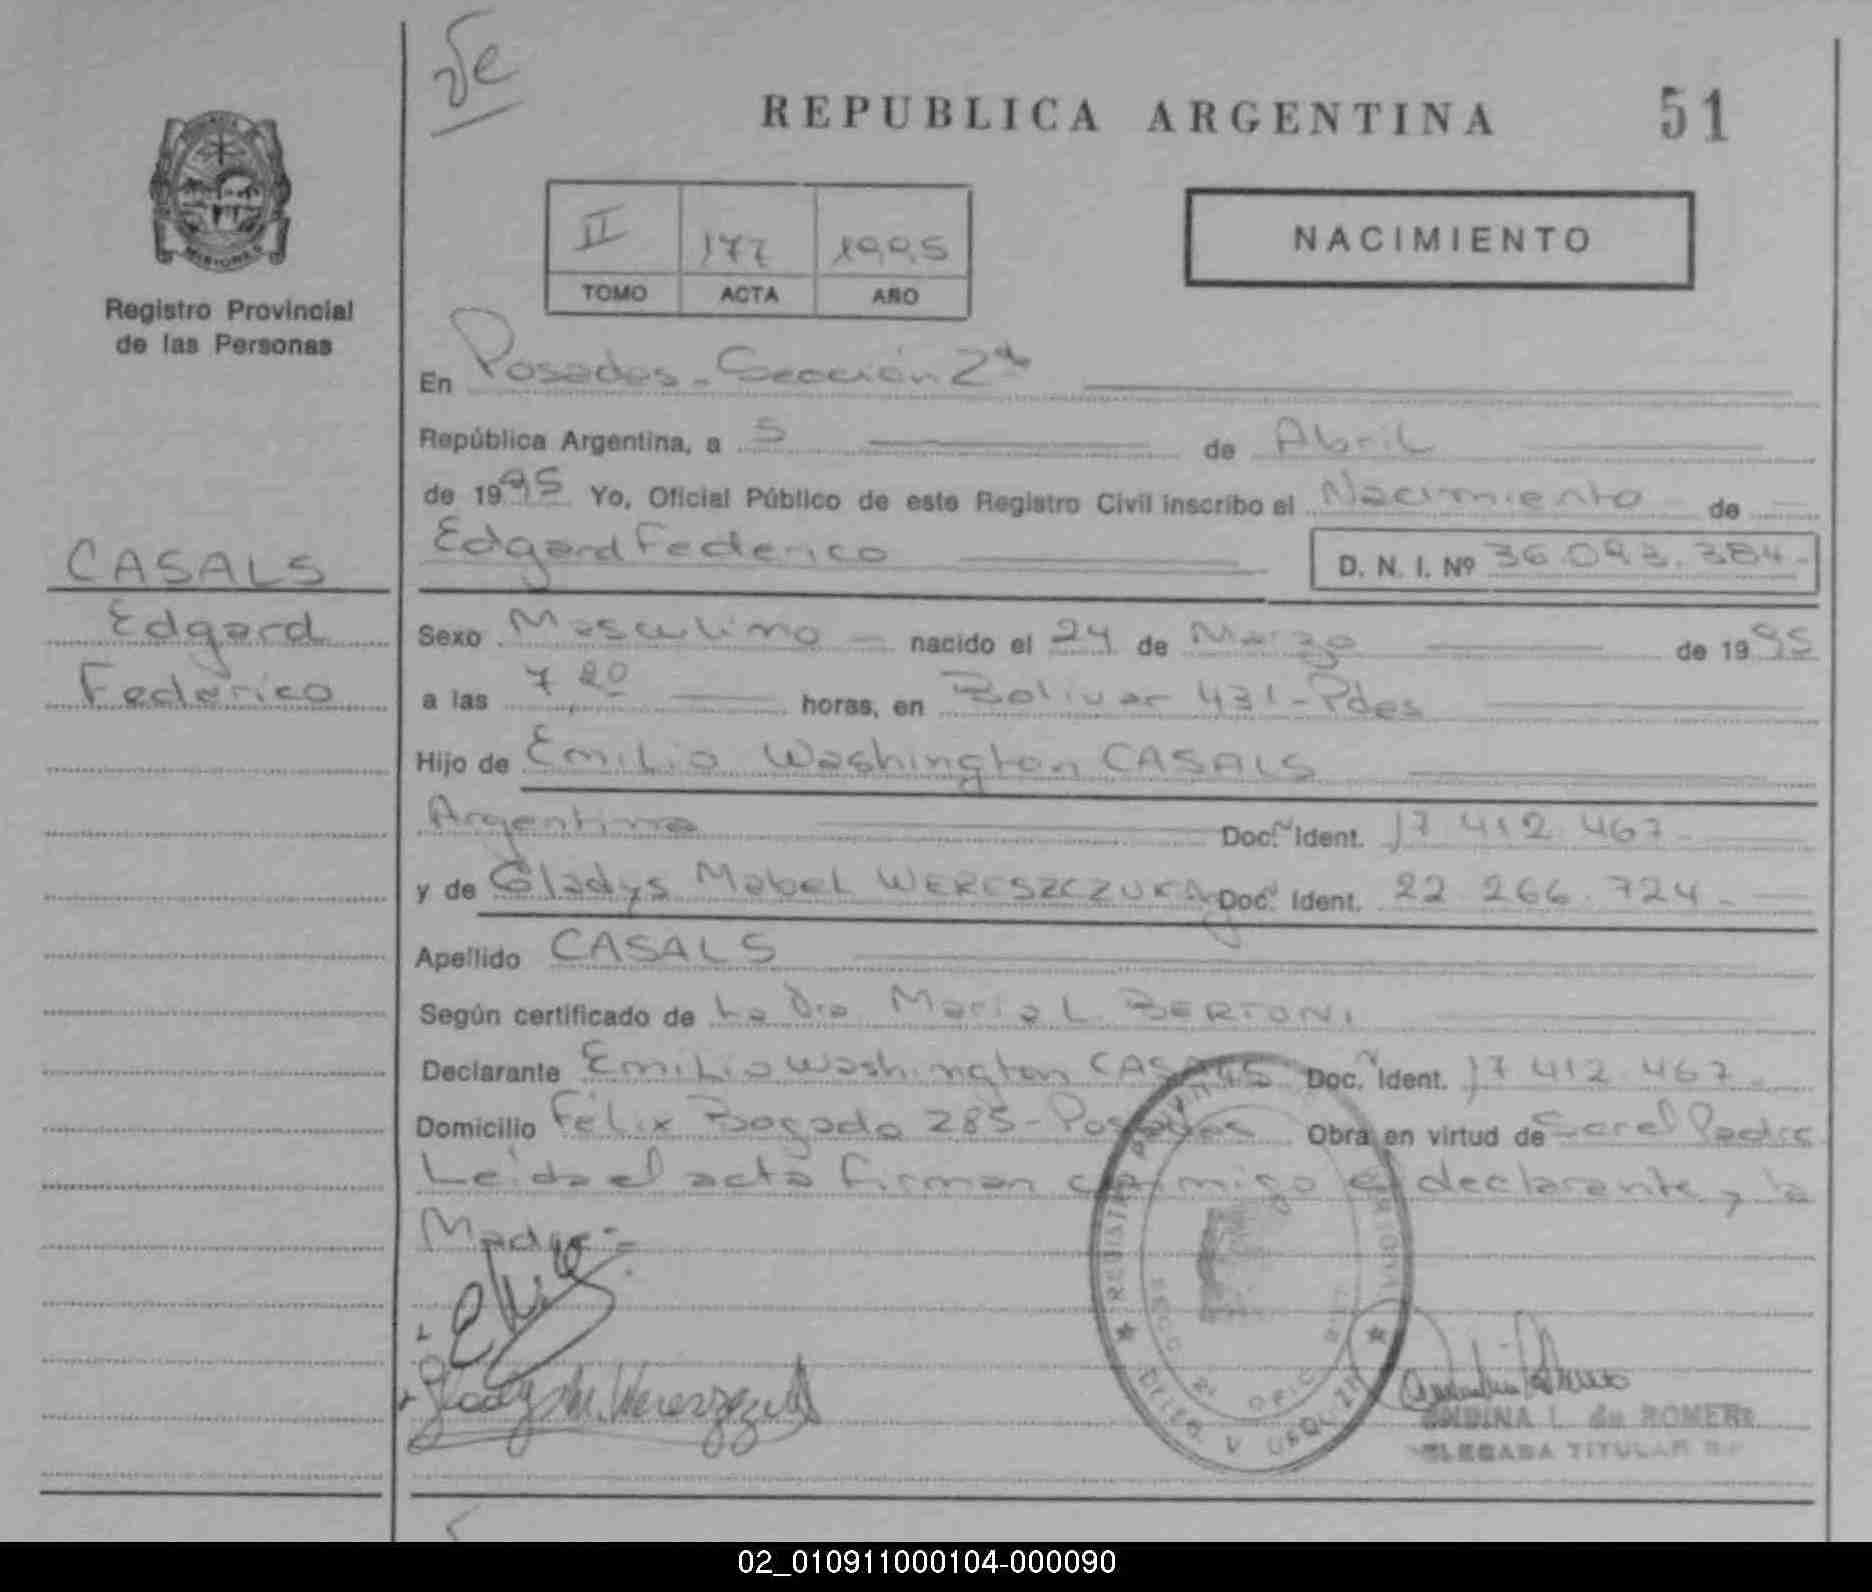 Ve
REPUBLICA ARGENTINA 51
MISIONES
Registro Provincial
de las Personas
II 177 1995
TOMO ACTA AÑO
NACIMIENTO
En Posadas - Sección 2da
República Argentina, a 5 de Abril
de 1995 Yo, Oficial Público de este Registro Civil inscribo el Nacimiento de
CASALS
Edgard
Federico
Edgard Federico D. N. I. Nº 36.093.384.-
Sexo Masculino nacido el 24 de Marzo de 1995
a las 7,20 horas, en Bolivar 431 - Pdas
Hijo de Emilio Washington CASALS
Argentino Doc. Ident. 17.412.467.-
y de Gladys Mabel WERESZCZUK Arg Doc. Ident. 22.266.724.-
Apellido CASALS
Según certificado de La Dra Maria L. BERTONI
Declarante Emilio Washington CASALS Doc. Ident. 17.412.467.
Domicilio Félix Bogado 285 - Posadas Obra en virtud de Ser el Padre
Leida el acta firman conmigo el declarante y la
Madre.=
Gladys M. Wereszczuk
REGISTRO PROVINCIAL
L. de ROMERO
DELEGADA TITULAR
02_010911000104-000090